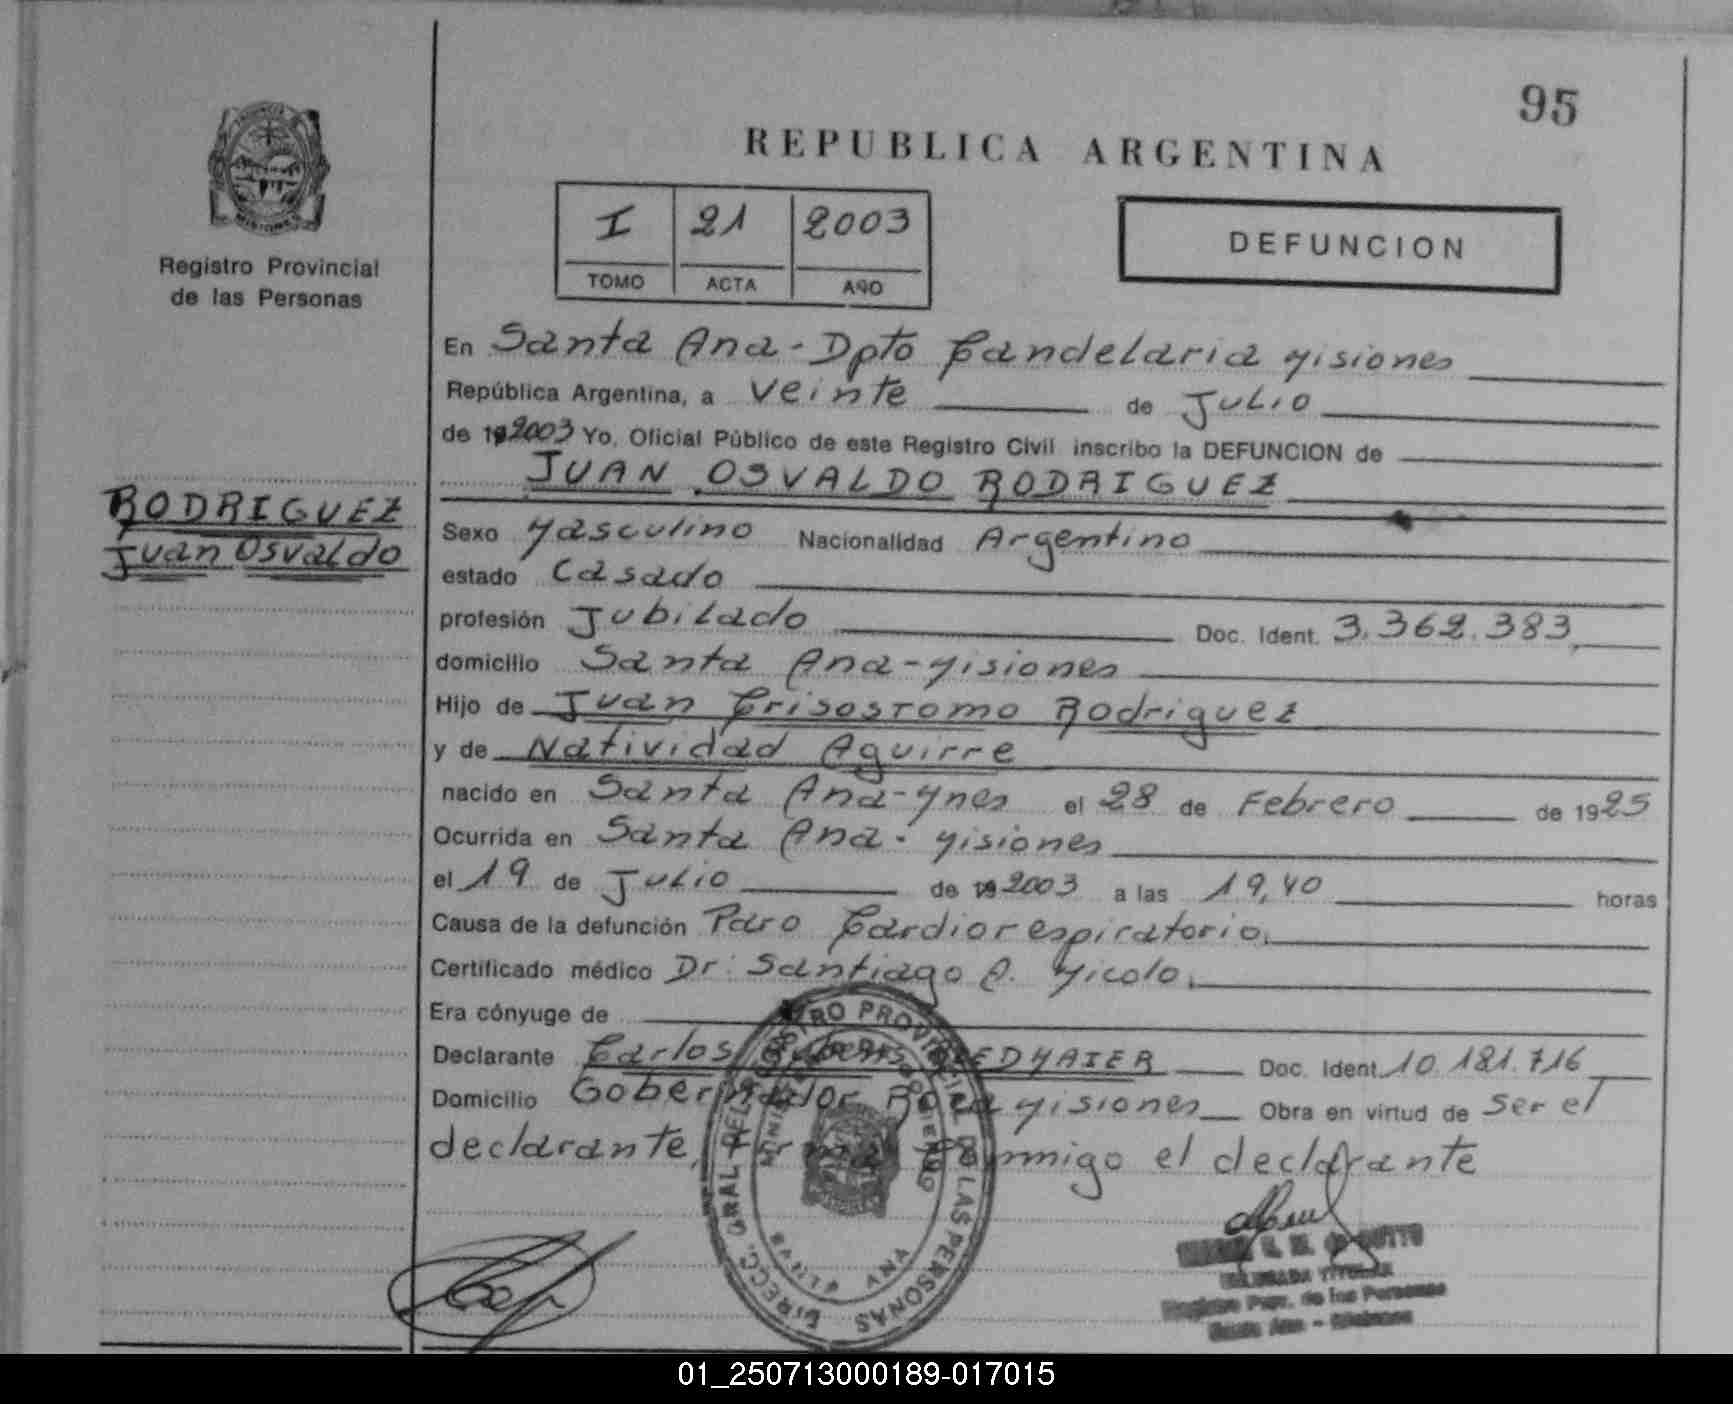 95
REPUBLICA ARGENTINA
I 21 2003
TOMO ACTA AÑO
DEFUNCION
MISIONES
Registro Provincial
de las Personas
En Santa Ana - Dpto Candelaria Misiones
República Argentina, a veinte de Julio
de 19 2003 Yo, Oficial Público de este Registro Civil inscribo la DEFUNCION de
JUAN OSVALDO RODRIGUEZ
RODRIGUEZ
Juan Osvaldo
Sexo Masculino Nacionalidad Argentino
estado Casado
profesión Jubilado Doc. Ident. 3.362.383,
domicilio Santa Ana - Misiones
Hijo de Juan Crisostomo Rodriguez
y de Natividad Aguirre
nacido en Santa Ana - Mnes el 28 de Febrero de 1925
Ocurrida en Santa Ana - Misiones
el 19 de Julio de 19 2003 a las 19,40 horas
Causa de la defunción Paro Cardiorespiratorio.
Certificado médico Dr: Santiago A. Micolo.
Era cónyuge de
Declarante Carlos Doc. Ident. 10.181.716
Domicilio Gobernador Roca Misiones Obra en virtud de Ser el
declarante, Firma Conmigo el declarante
DIRECC. GRAL DEL REGISTRO PROVINCIAL DE LAS PERSONAS
MINISTERIO DE GOBIERNO
SANTA ANA
TITULAR
Registro Prov. de las Personas
Santa Ana - Misiones
01_250713000189-017015